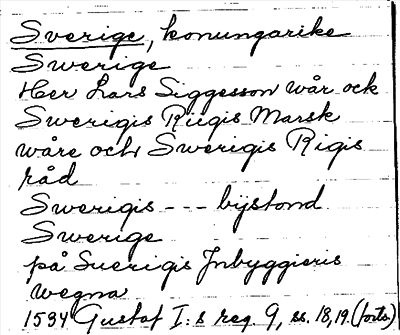 Sverige, konungarike
Swerige
Her Lars Siggesson wår ock
Swerigis Riigis Marsk
wåre och Swerigis Rigis
råd
Swerigis --- bijstond
Swerige
på Suerigis Inbyggieris
wegna
1534 Gustaf I:s reg. 9, ss. 18, 19. (forts.)